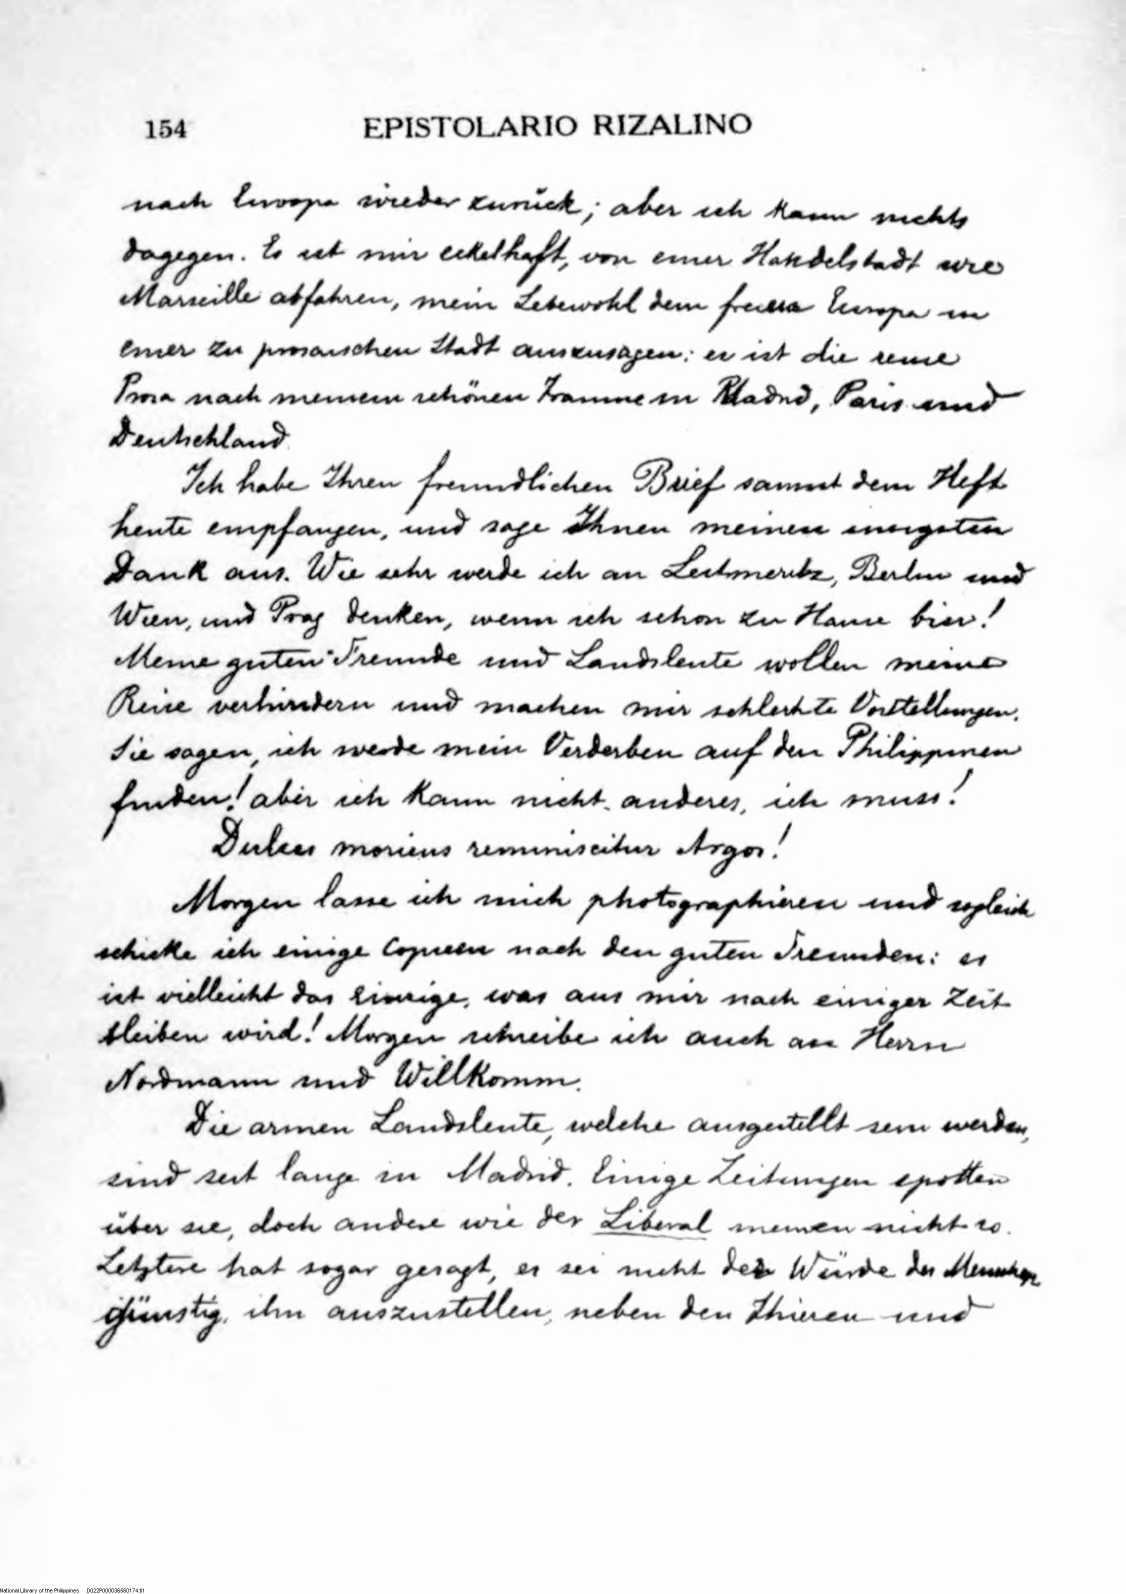 154 EPISTOLARIO RIZALINO
nach Europa wieder zurück; aber ich kann nichts
dagegen. Es ist mir eckelhaft, von einer Handelstadt wie
Marseille abfahren, mein Lebewohl dem freien Europa in
einer zu prosaischen Stadt auszusagen: es ist die reine
Prosa nach meinem schönen Traume in Madrid, Paris und
Deutschland.
Ich habe Ihren freundlichen Brief sammt dem Heft
heute empfangen, und sage Ihnen meinen innigsten
Dank aus. Wie sehr werde ich an Leitmeritz, Berlin und
Wien, und Prag denken, wenn ich schon zu Hause bin!
Meine guten Freunde und Landsleute wollen meine
Reise verhindern und machen mir schlechte Vorstellungen.
Sie sagen, ich werde mein Verderben auf den Philippinen
finden! aber ich kann nicht anderes, ich muss!
Dulces moriens reminiscitur Argos!
Morgen lasse ich mich photographieren und sogleich
schicke ich einige Copieen nach den guten Freunden: es
ist vielleicht das Einzige, was aus mir nach einiger Zeit
bleiben wird! Morgen schreibe ich auch an Herrn
Nordmann und Willkomm.
Die armen Landsleute, welche ausgestellt sein werden,
sind seit lange in Madrid. Einige Zeitungen spotten
über sie, doch andere wie der Liberal meinen nicht so.
Letztere hat sogar gesagt, es sei nicht der Würde des Menschen
günstig, ihn auszustellen, neben den Thieren und
National Library of the Philippines